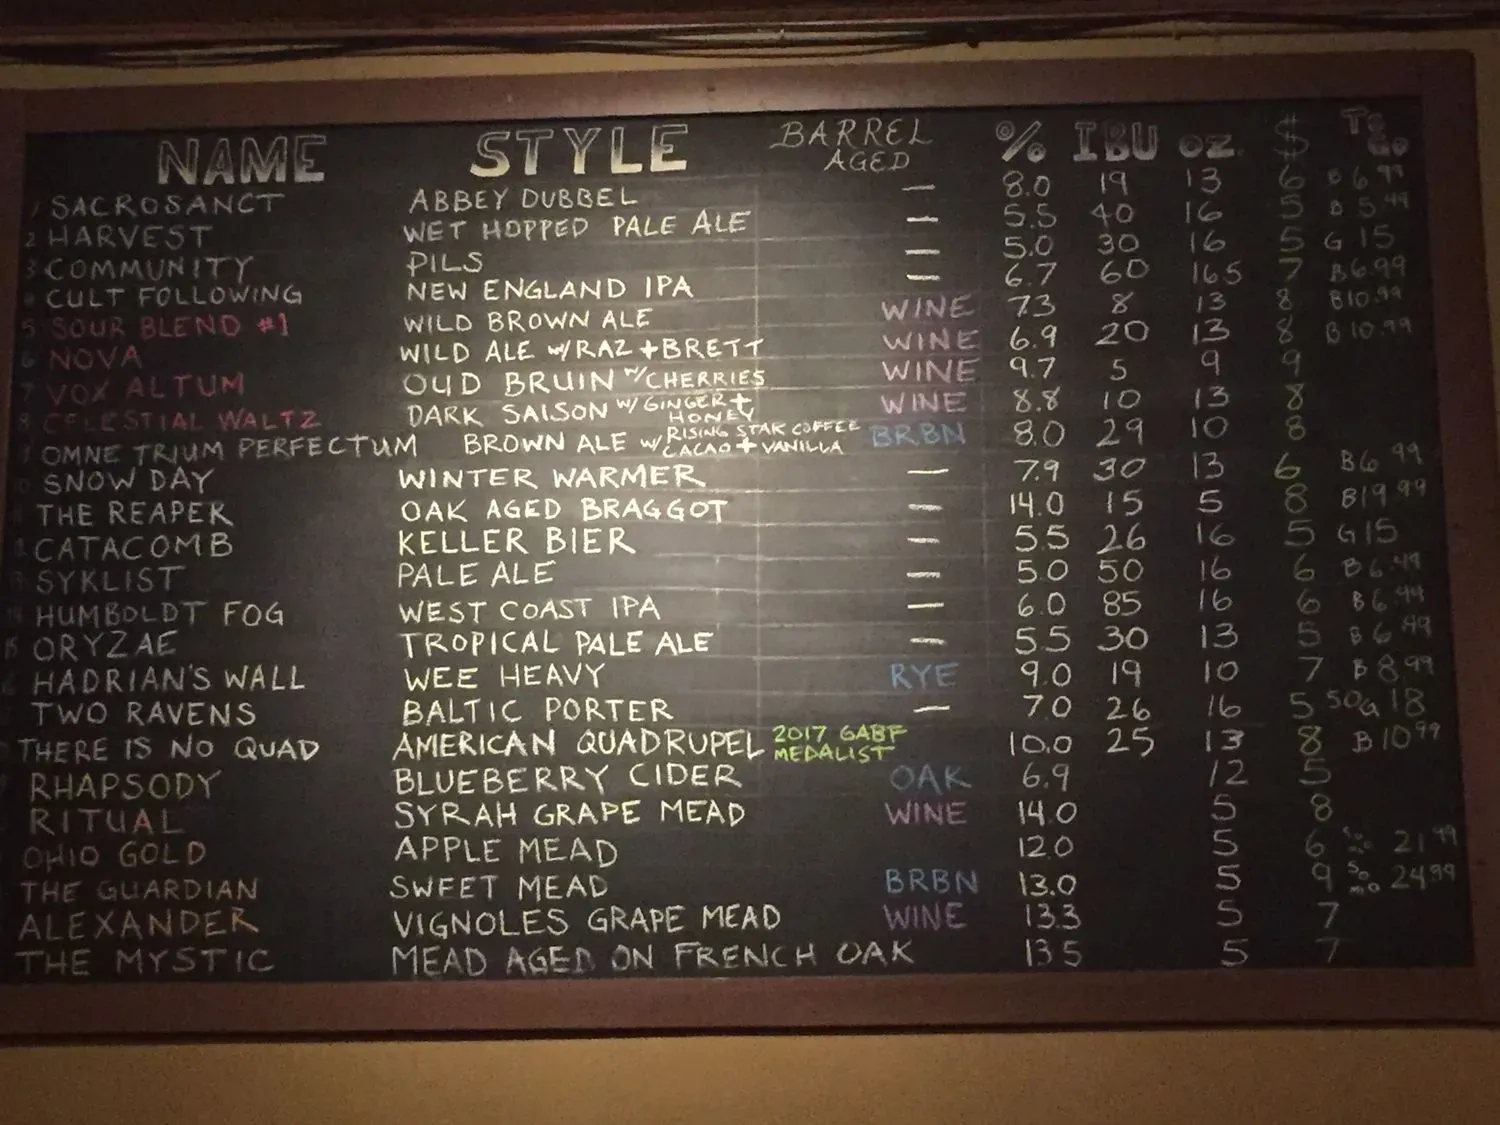 NAME STYLE BARREL AGED % IBU OZ. $ TO GO
1 SACROSANCT ABBEY DUBBEL — 8.0 19 13 6 B 6.99
2 HARVEST WET HOPPED PALE ALE — 5.5 40 16 5 B 5.99
3 COMMUNITY PILS — 5.0 30 16 5 G 15
4 CULT FOLLOWING NEW ENGLAND IPA — 6.7 60 16.5 7 B 6.99
5 SOUR BLEND #1 WILD BROWN ALE WINE 7.3 8 13 8 B10.99
6 NOVA WILD ALE w/RAZ + BRETT WINE 6.9 20 13 8 B 10.99
7 VOX ALTUM OUD BRUIN w/CHERRIES WINE 9.7 5 9 9
8 CELESTIAL WALTZ DARK SAISON w/ GINGER + HONEY WINE 8.8 10 13 8
9 OMNE TRIUM PERFECTUM BROWN ALE w/ RISING STAR COFFEE CACAO + VANILLA BRBN 8.0 29 10 8
10 SNOW DAY WINTER WARMER — 7.9 30 13 6 B6.99
THE REAPER OAK AGED BRAGGOT — 14.0 15 5 8 B19.99
CATACOMB KELLER BIER — 5.5 26 16 5 G15
13 SYKLIST PALE ALE — 5.0 50 16 6 B 6.49
14 HUMBOLDT FOG WEST COAST IPA — 6.0 85 16 6 B 6.99
15 ORYZAE TROPICAL PALE ALE — 5.5 30 13 5 B 6.99
HADRIAN'S WALL WEE HEAVY RYE 9.0 19 10 7 B 8.99
TWO RAVENS BALTIC PORTER — 7.0 26 16 5.50 G 18
THERE IS NO QUAD AMERICAN QUADRUPEL 2017 GABF MEDALIST 10.0 25 13 8 B 10.99
RHAPSODY BLUEBERRY CIDER OAK 6.9 12 5
RITUAL SYRAH GRAPE MEAD WINE 14.0 5 8
OHIO GOLD APPLE MEAD 12.0 5 6 21.99
THE GUARDIAN SWEET MEAD BRBN 13.0 5 9 24.99
ALEXANDER VIGNOLES GRAPE MEAD WINE 13.3 5 7
THE MYSTIC MEAD AGED ON FRENCH OAK 13.5 5 7